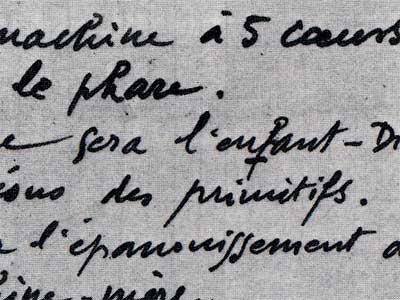 machine à 5 cœurs
le phare.
e sera l'enfant-Di
ésus des primitifs.
l'épanouissement d
hine-mère